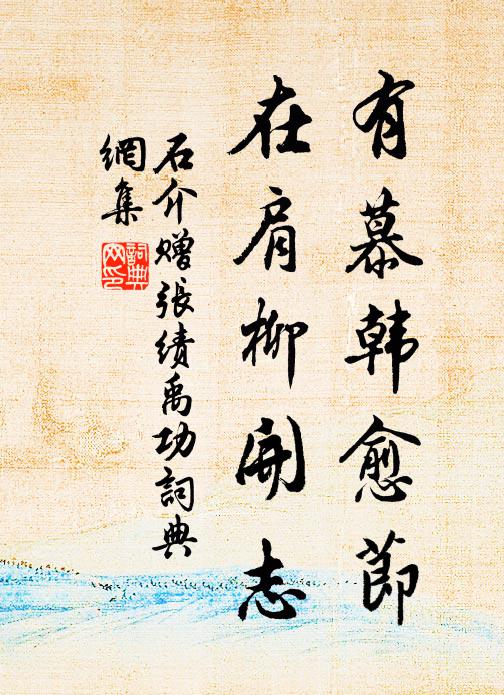 有慕韩愈節
在肩柳開志
石介赠張績禹功詞典
網集
詞典
网印